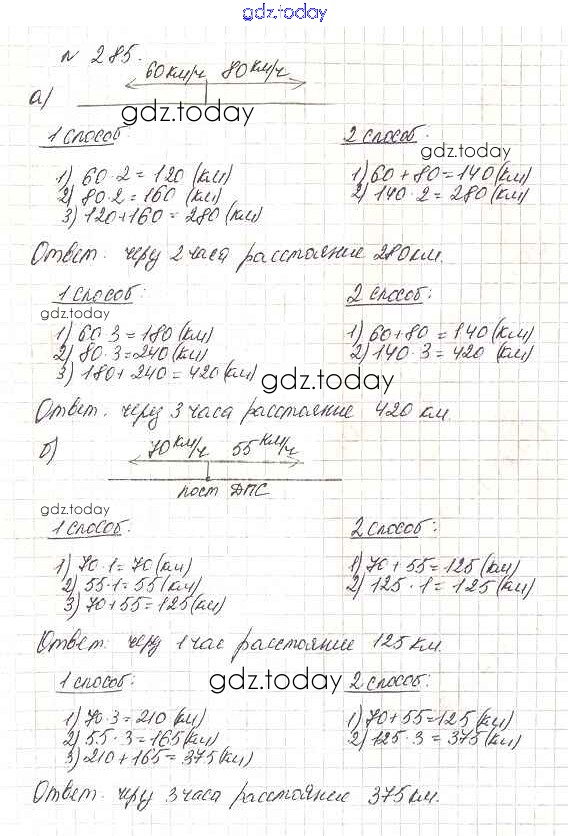 gdz.today
№ 285.
60 км/ч 80 км/ч
а)
gdz.today
1 способ 2 способ.
gdz.today
1) 60 · 2 = 120 (км) 1) 60 + 80 = 140 (км)
2) 80 · 2 = 160 (км) 2) 140 · 2 = 280 (км)
3) 120 + 160 = 280 (км)
Ответ: через 2 часа расстояние 280 км.
1 способ: 2 способ:
gdz.today
1) 60 · 3 = 180 (км) 1) 60 + 80 = 140 (км)
2) 80 · 3 = 240 (км) 2) 140 · 3 = 420 (км)
3) 180 + 240 = 420 (км)
gdz.today
Ответ: через 3 часа расстояние 420 км.
б) 70 км/ч 55 км/ч
пост ДПС
gdz.today
1 способ. 2 способ:
gdz.today
1) 70 · 1 = 70 (км) 1) 70 + 55 = 125 (км)
2) 55 · 1 = 55 (км) 2) 125 · 1 = 125 (км)
3) 70 + 55 = 125 (км)
Ответ: через 1 час расстояние 125 км.
1 способ: 2 способ:
gdz.today
1) 70 · 3 = 210 (км) 1) 70 + 55 = 125 (км)
2) 55 · 3 = 165 (км) 2) 125 · 3 = 375 (км)
3) 210 + 165 = 375 (км)
Ответ: через 3 часа расстояние 375 км.